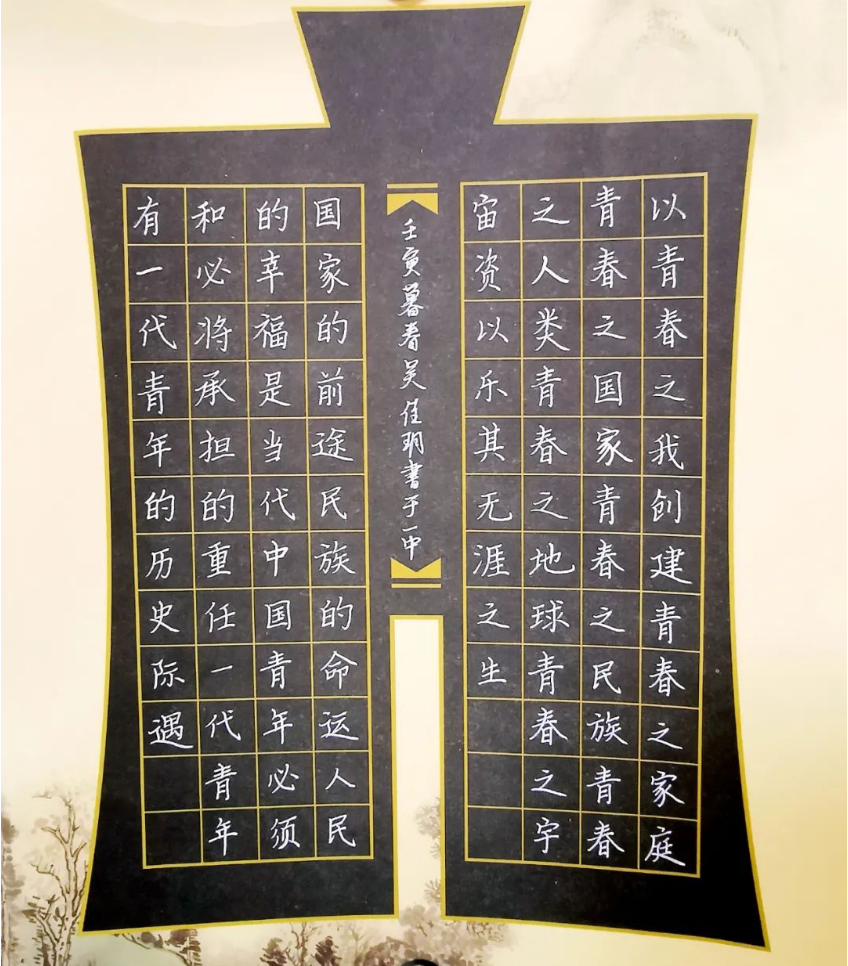 以青春之我创建青春之家庭
青春之国家青春之民族青春
之人类青春之地球青春之宇
宙资以乐其无涯之生
壬寅暮春吴佳玥书于一中
国家的前途民族的命运人民
的幸福是当代中国青年必须
和必将承担的重任一代青年
有一代青年的历史际遇